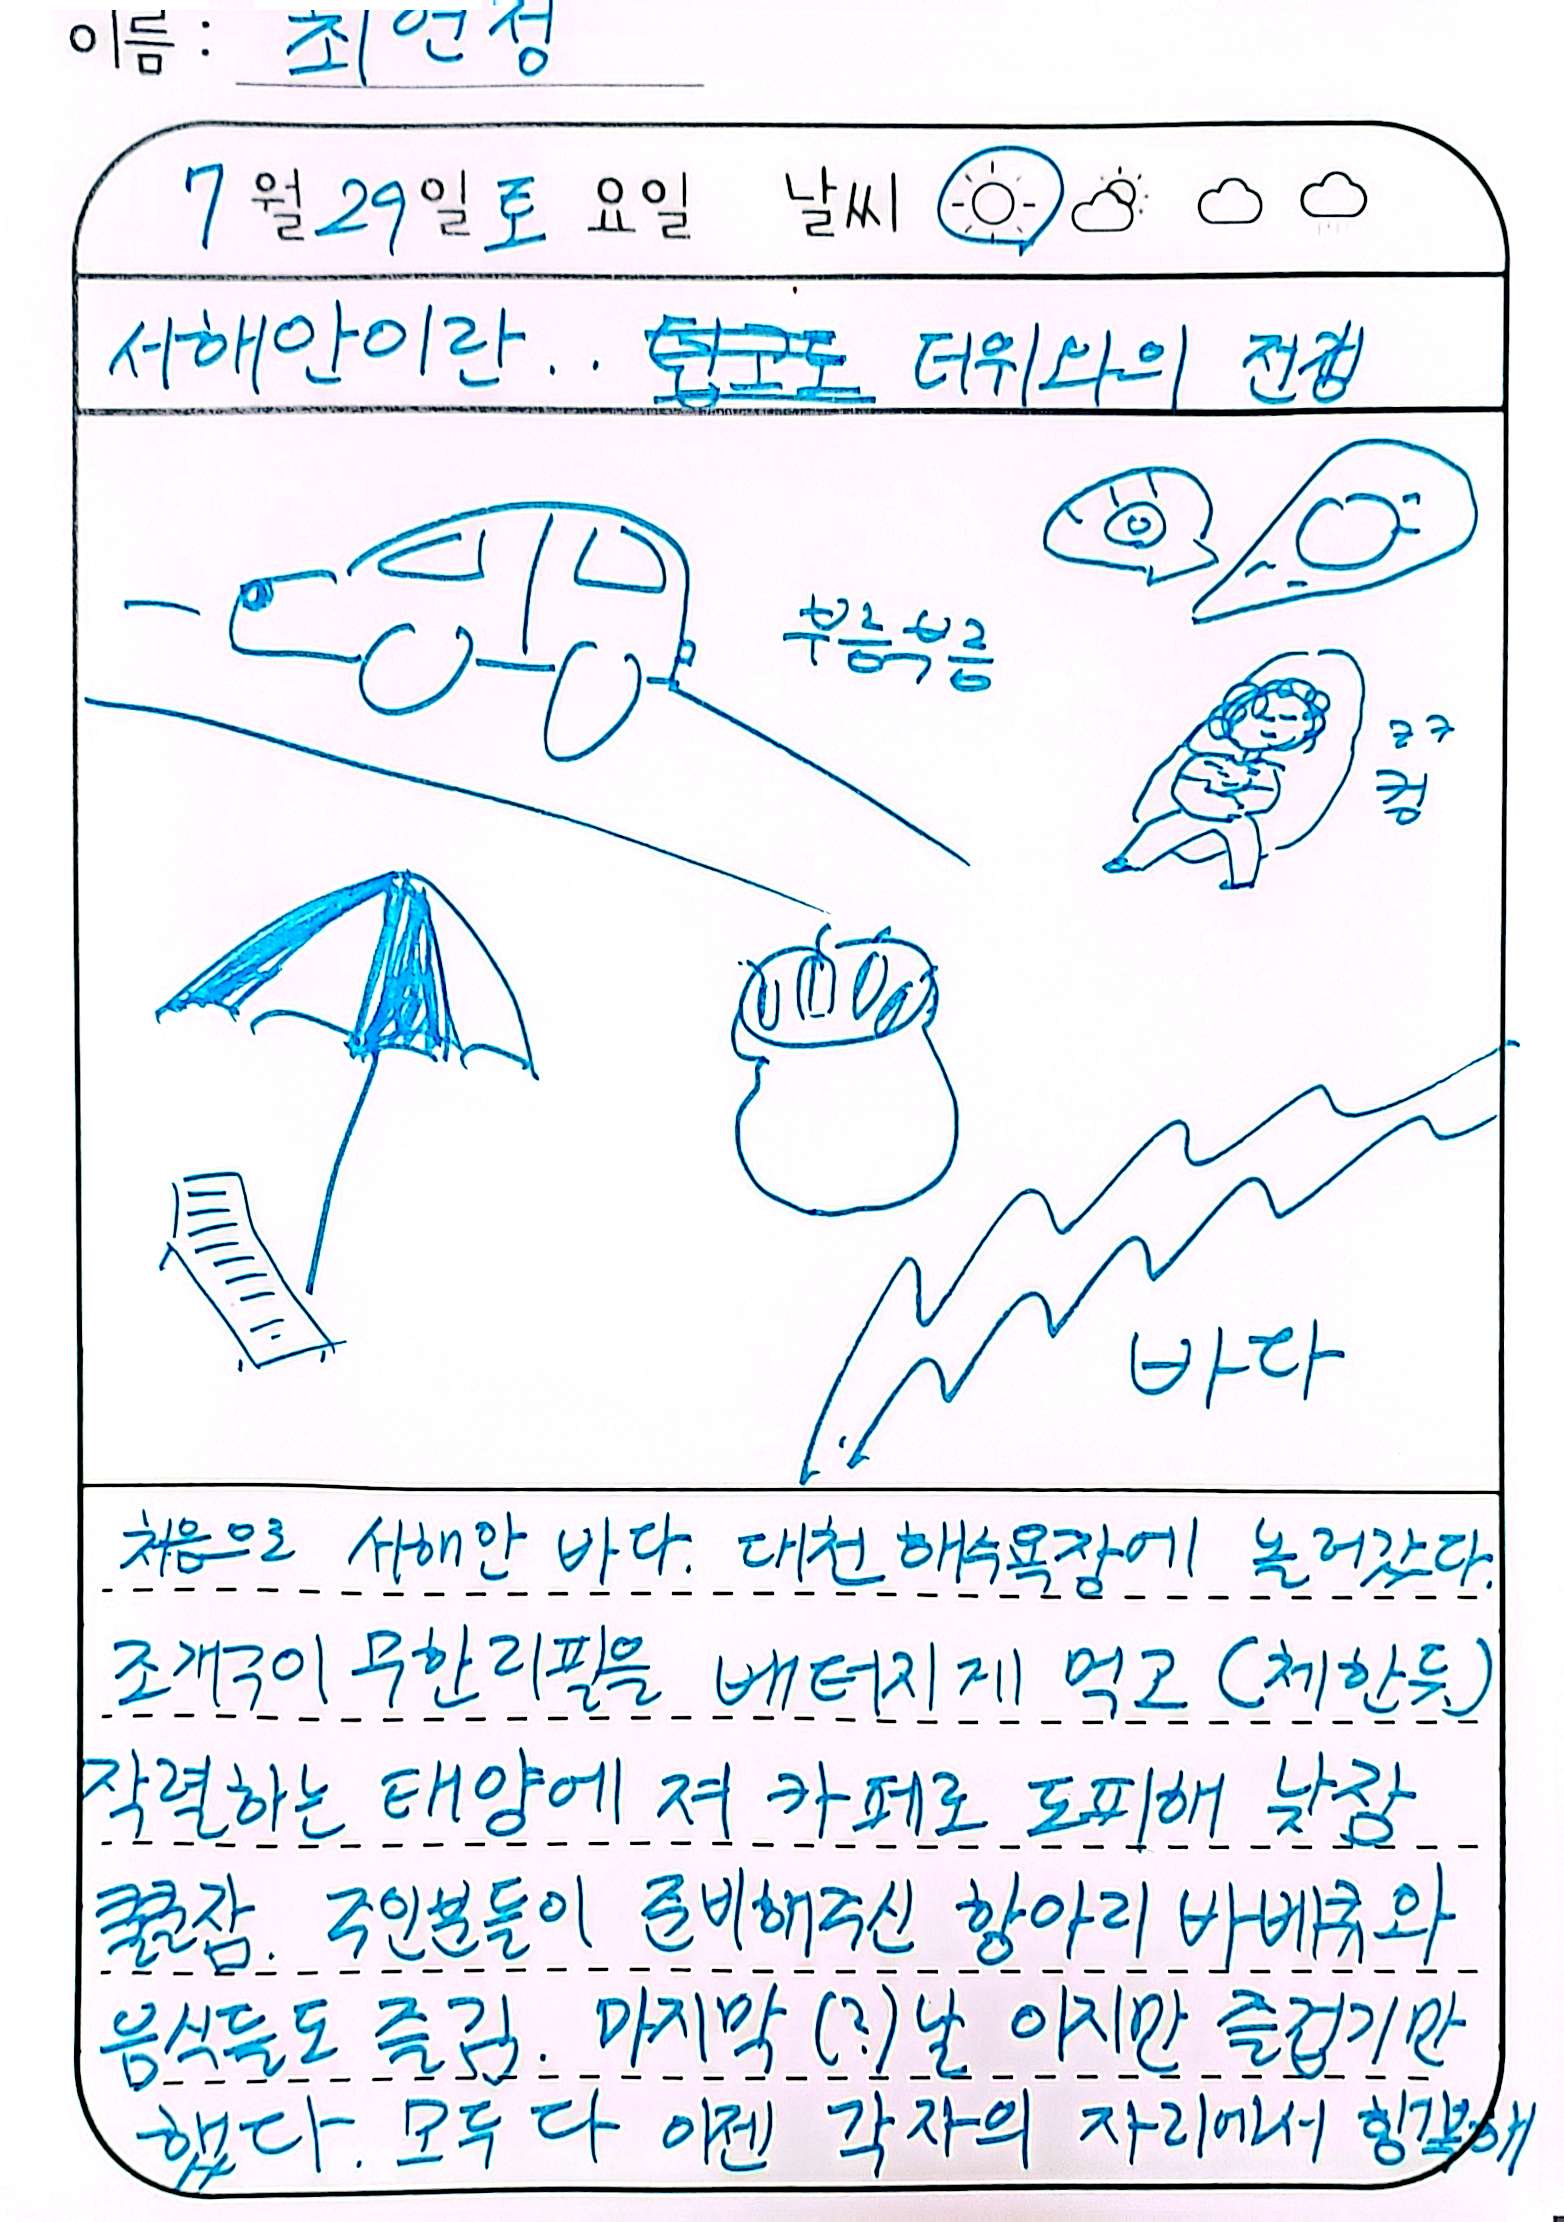 이름: 최연정
7월 29일 토요일 날씨
서해안이란.. 더위와의 전쟁
부릉부릉
쿨
바다
처음으로 서해안 바다. 대천해수욕장에 놀러갔다.
조개구이 무한리필을 배터지게 먹고 (체한듯)
작렬하는 태양에 져 카페로 도피해 낮잠
쿨쿨잠. 주인분들이 준비해주신 항아리 바베큐와
음식들도 즐김. 마지막(?)날 이지만 즐겁기만
했다. 모두 다 이젠 각자의 자리에서 힝구해